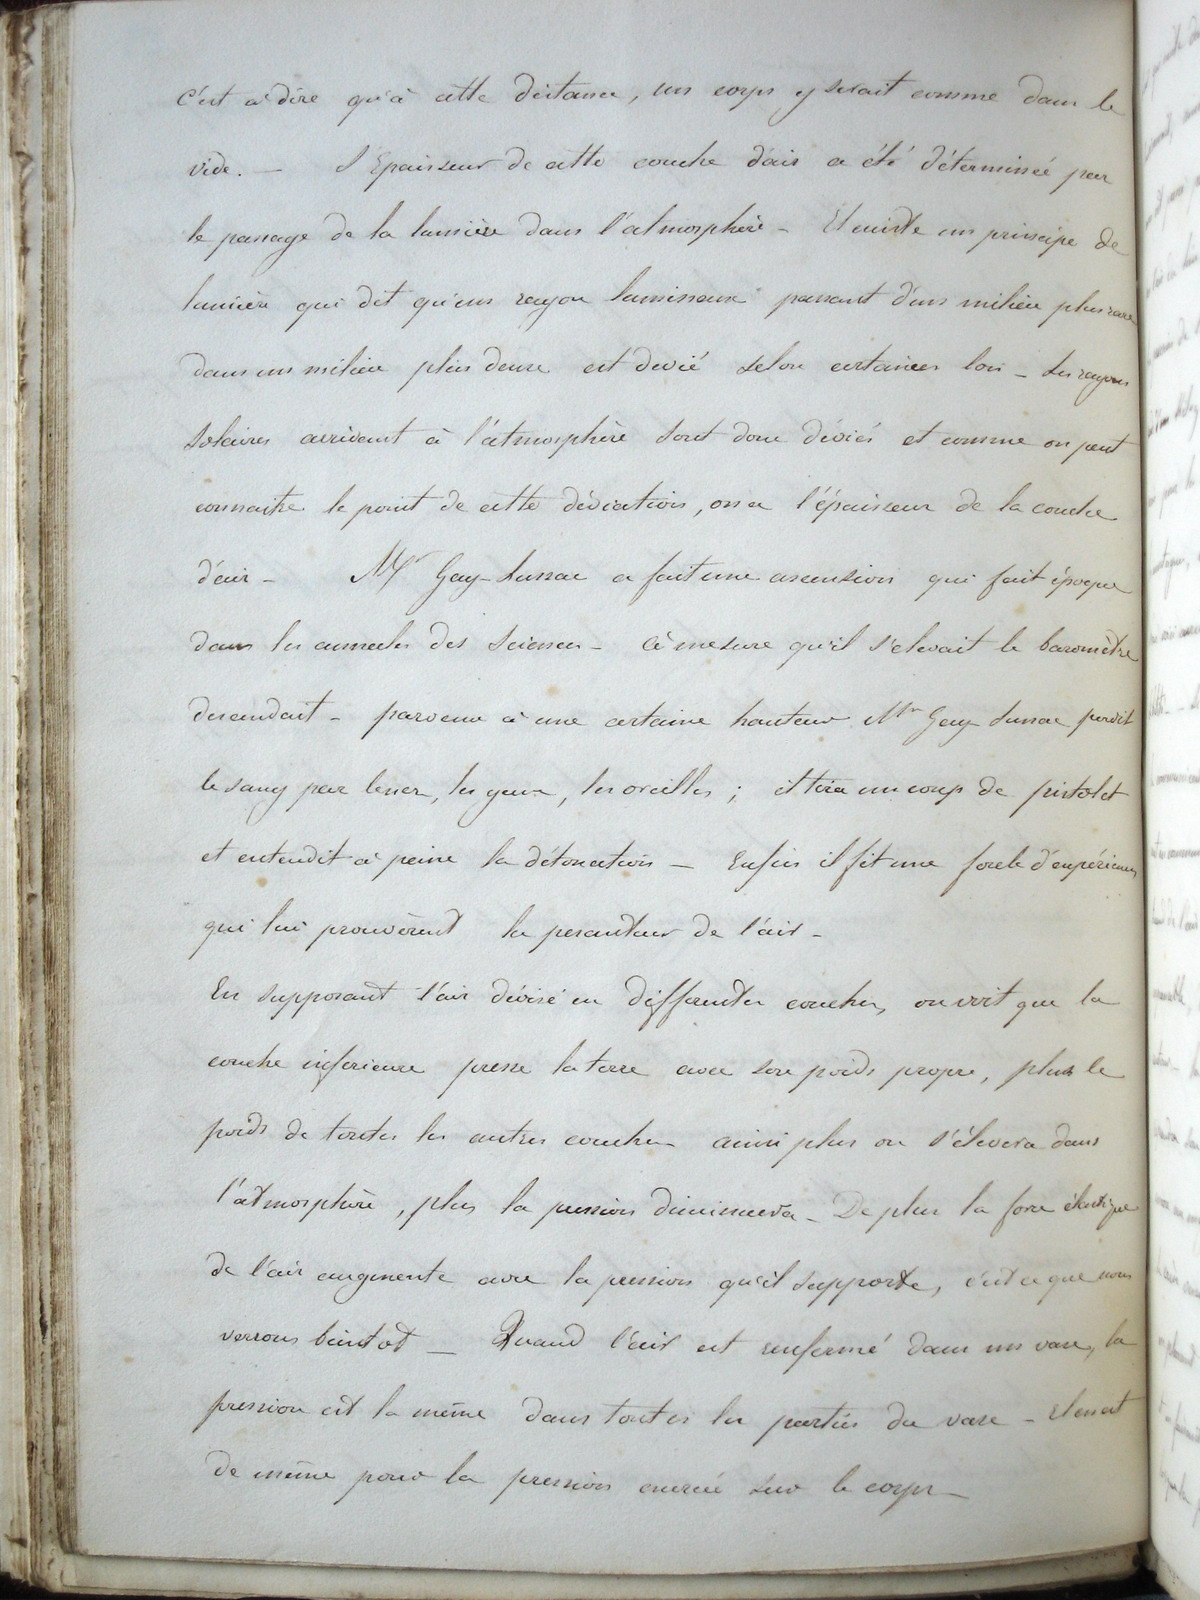 c'est à dire qu'à cette distance, un corps y serait comme dans le
vide. — l'Epaisseur de cette couche d'air a été déterminée par
le passage de la lumière dans l'atmosphère — Il existe un principe de
lumière qui dit qu'un rayon lumineux passant d'un milieu plus rare
dans un milieu plus dense est devié selon certaines lois — Les rayons
solaires arrivant à l'atmosphère sont donc déviés et comme on peut
connaitre le point de cette déviation, on a l'épaisseur de la couche
d'air — Mr Gay-Lussac a fait une ascension qui fait époque
dans les annales des Sciences — à mesure qu'il s'elevait le baromètre
descendait — parvenu à une certaine hauteur Mr Gay-Lussac perdit
le sang par le nez, les yeux, les oreilles ; il tira un coup de pistolet
et entendit à peine la détonation — Enfin il fit une foule d'expériences
qui lui prouvèrent la pesanteur de l'air —
En supposant l'air divisé en differentes couches, on voit que la
couche inferieure presse la terre avec son poids propre, plus le
poids de toutes les autres couches — ainsi plus on s'élevera dans
l'atmosphère, plus la pression diminuera — De plus la force élastique
de l'air augmente avec la pression qu'il supporte, c'est ce que nous
verrons bientot — Quand l'air est renfermé dans un vase, la
pression est la même dans toutes les parties du vase — Il en est
de même pour la pression exercée sur le corps —